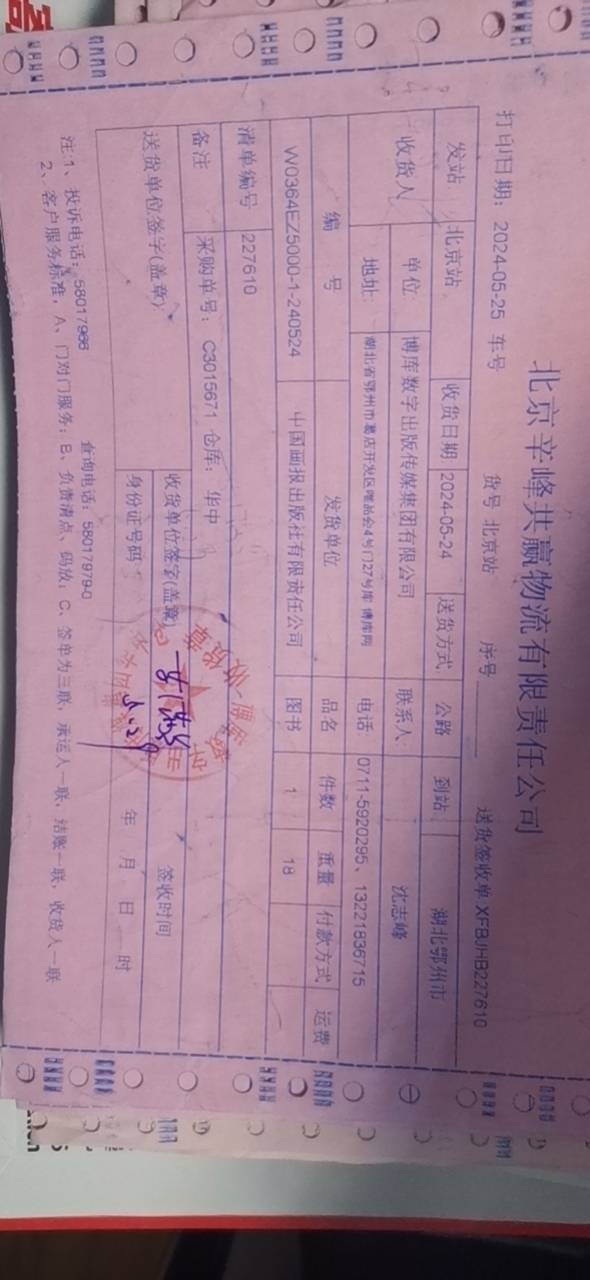 北京辛峰共赢物流有限责任公司
送货签收单 XFBJHB227610
打印日期： 2024-05-25 车号 货号 北京站 序号
发站 北京站 收货日期 2024-05-24 送货方式 公路 到站 湖北鄂州市
收货人 单位 博库数字出版传媒集团有限公司 联系人 沈志峰
地址 湖北省鄂州市葛店开发区唯品会4号门27号库 博库网 电话 0711-5920295、13221836715
编 号 发货单位 品名 件数 重量 付款方式 运费
W0364EZ5000-1-240524 中国画报出版社有限责任公司 图书 1 18
清单编号 227610
备注 采购单号： C3015671 仓库： 华中
送货单位签字(盖章) 收货单位签字(盖章) 签收时间
身份证号码 年 月 日 时
注：1、投诉电话：58017966 查询电话：58017979-0
2、客户服务标准，A、门对门服务；B、负责清点、码放；C、签单为三联，承运人一联，结账一联，收货人一联